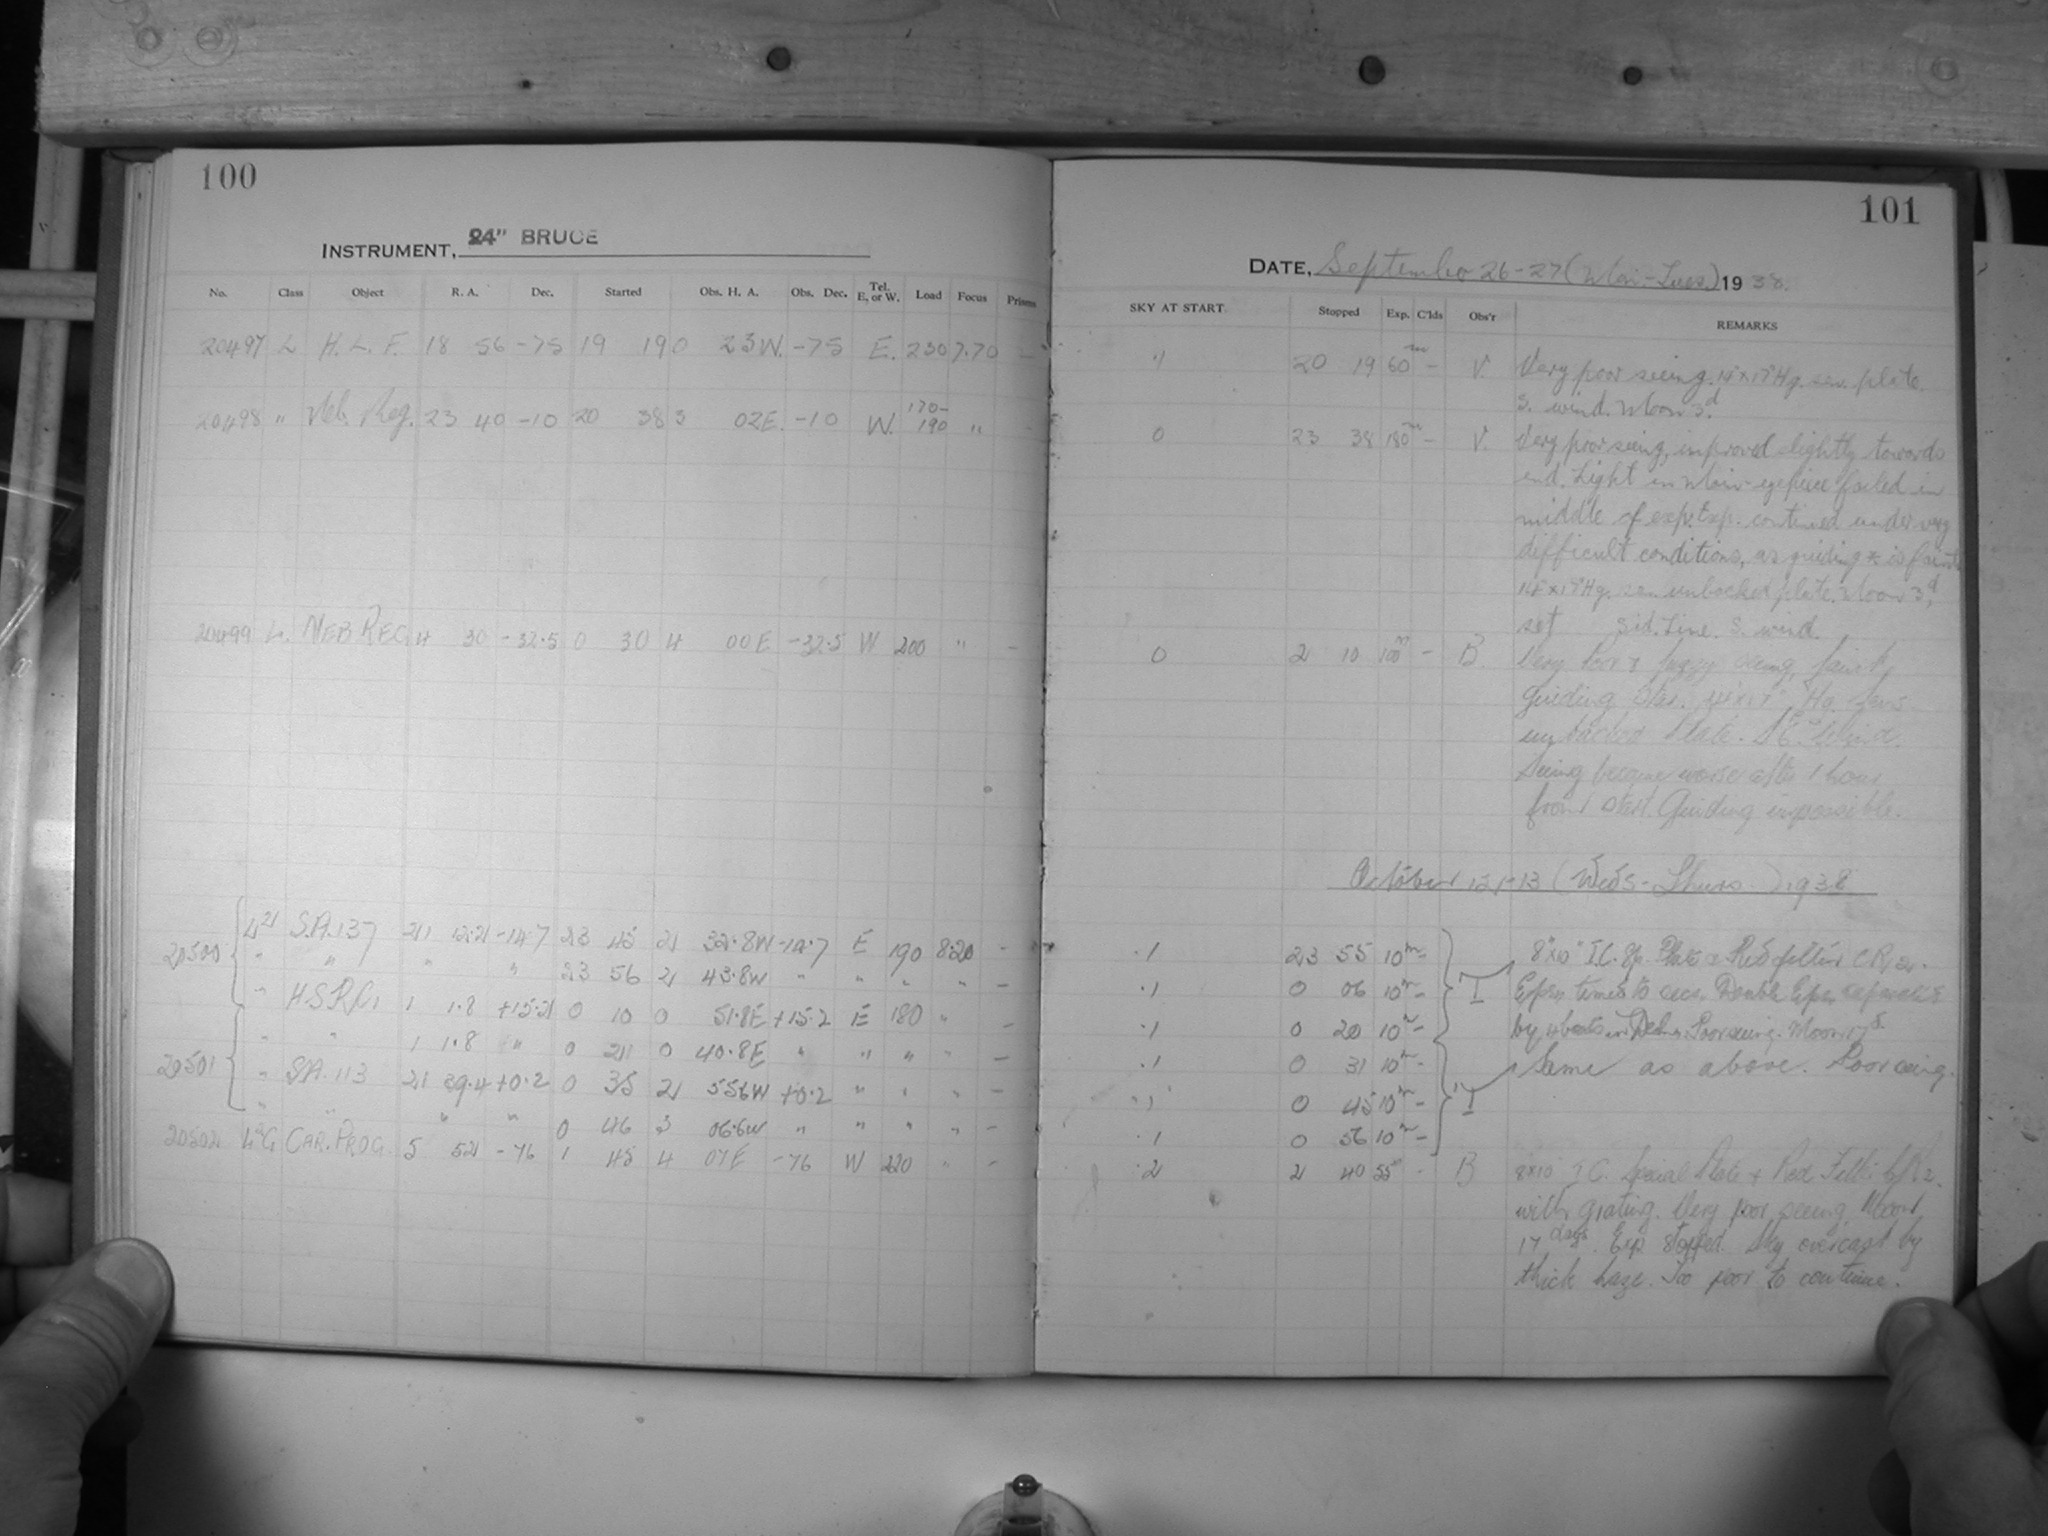 100
INSTRUMENT, 24" BRUCE
No. Class Object R. A. Dec. Started Obs. H. A. Obs. Dec. Tel. E. or W. Load Focus Prisms
20497 L H. L. F. 18 56 -75 19 19 0 23W. -75 E. 230 7.70 -
20498 " Neb. Reg. 23 40 -10 20 38 3 02E. -10 W. 170-190 "
20499 L. NEB REG. 4 30 -32.5 0 30 4 00E -32.5 W 200 " -
20500 S.A. 137 23 45 32.8W E 190 8.20 -
" " " " 23 56 43.8W " " " " -
" H.S.P.C. 1 1.8 0 10 0 51.8E +15.2 E 180 " -
" " 1 1.8 " 0 0 40.8E " " " -
20501 " S.A. 113 39.4 +0.2 0 35 +0.2 " " " -
" " " " 0 46 06.6W " " " " -
CAR. PROG. 5 -76 1 45 4 07E -76 W 220 " -
101
DATE, September 26-27 (Mon-Tues.) 1938.
SKY AT START Stopped Exp. C'lds Obs'r REMARKS
20 19 60m - V. Very poor seeing. 14"x17" Hg. sen. plate.
S. wind. Moon 3d
0 23 38 180m - V. Very poor seeing, improved slightly towards
end. Light in Main eyepiece failed in
middle of exp. Exp. continued under very
difficult conditions, as guiding * is faint
14"x17" Hg. sen. unbacked plate. Moon 3d,
set Sid. Time. S. wind.
0 2 10 100m - B. Very Poor & fuzzy seeing, faint
guiding star. 14"x17" Hg. sens
unbacked Plate. S.E. Wind.
Seeing became worse after 1 hour
from start. Guiding impossible.
October 12-13 (Weds-Thurs.) 1938
.1 23 55 10m - 8"x10" I.C. Sp. Plate & Red filter CR2.
.1 0 06 10m - times 10 secs. Double Exps. separated
.1 0 20 10m - by 4 beats in Dec. Poor seeing. Moon 17d
.1 0 31 10m - Same as above. Poor seeing.
.1 0 45 10m -
.1 0 56 10m -
.2 2 40 55 - B 8x10 I.C. Special Plate + Red Filter
with grating. Very poor seeing. Moon
17 days. Exp. stopped. Sky overcast by
thick haze. Too poor to continue.